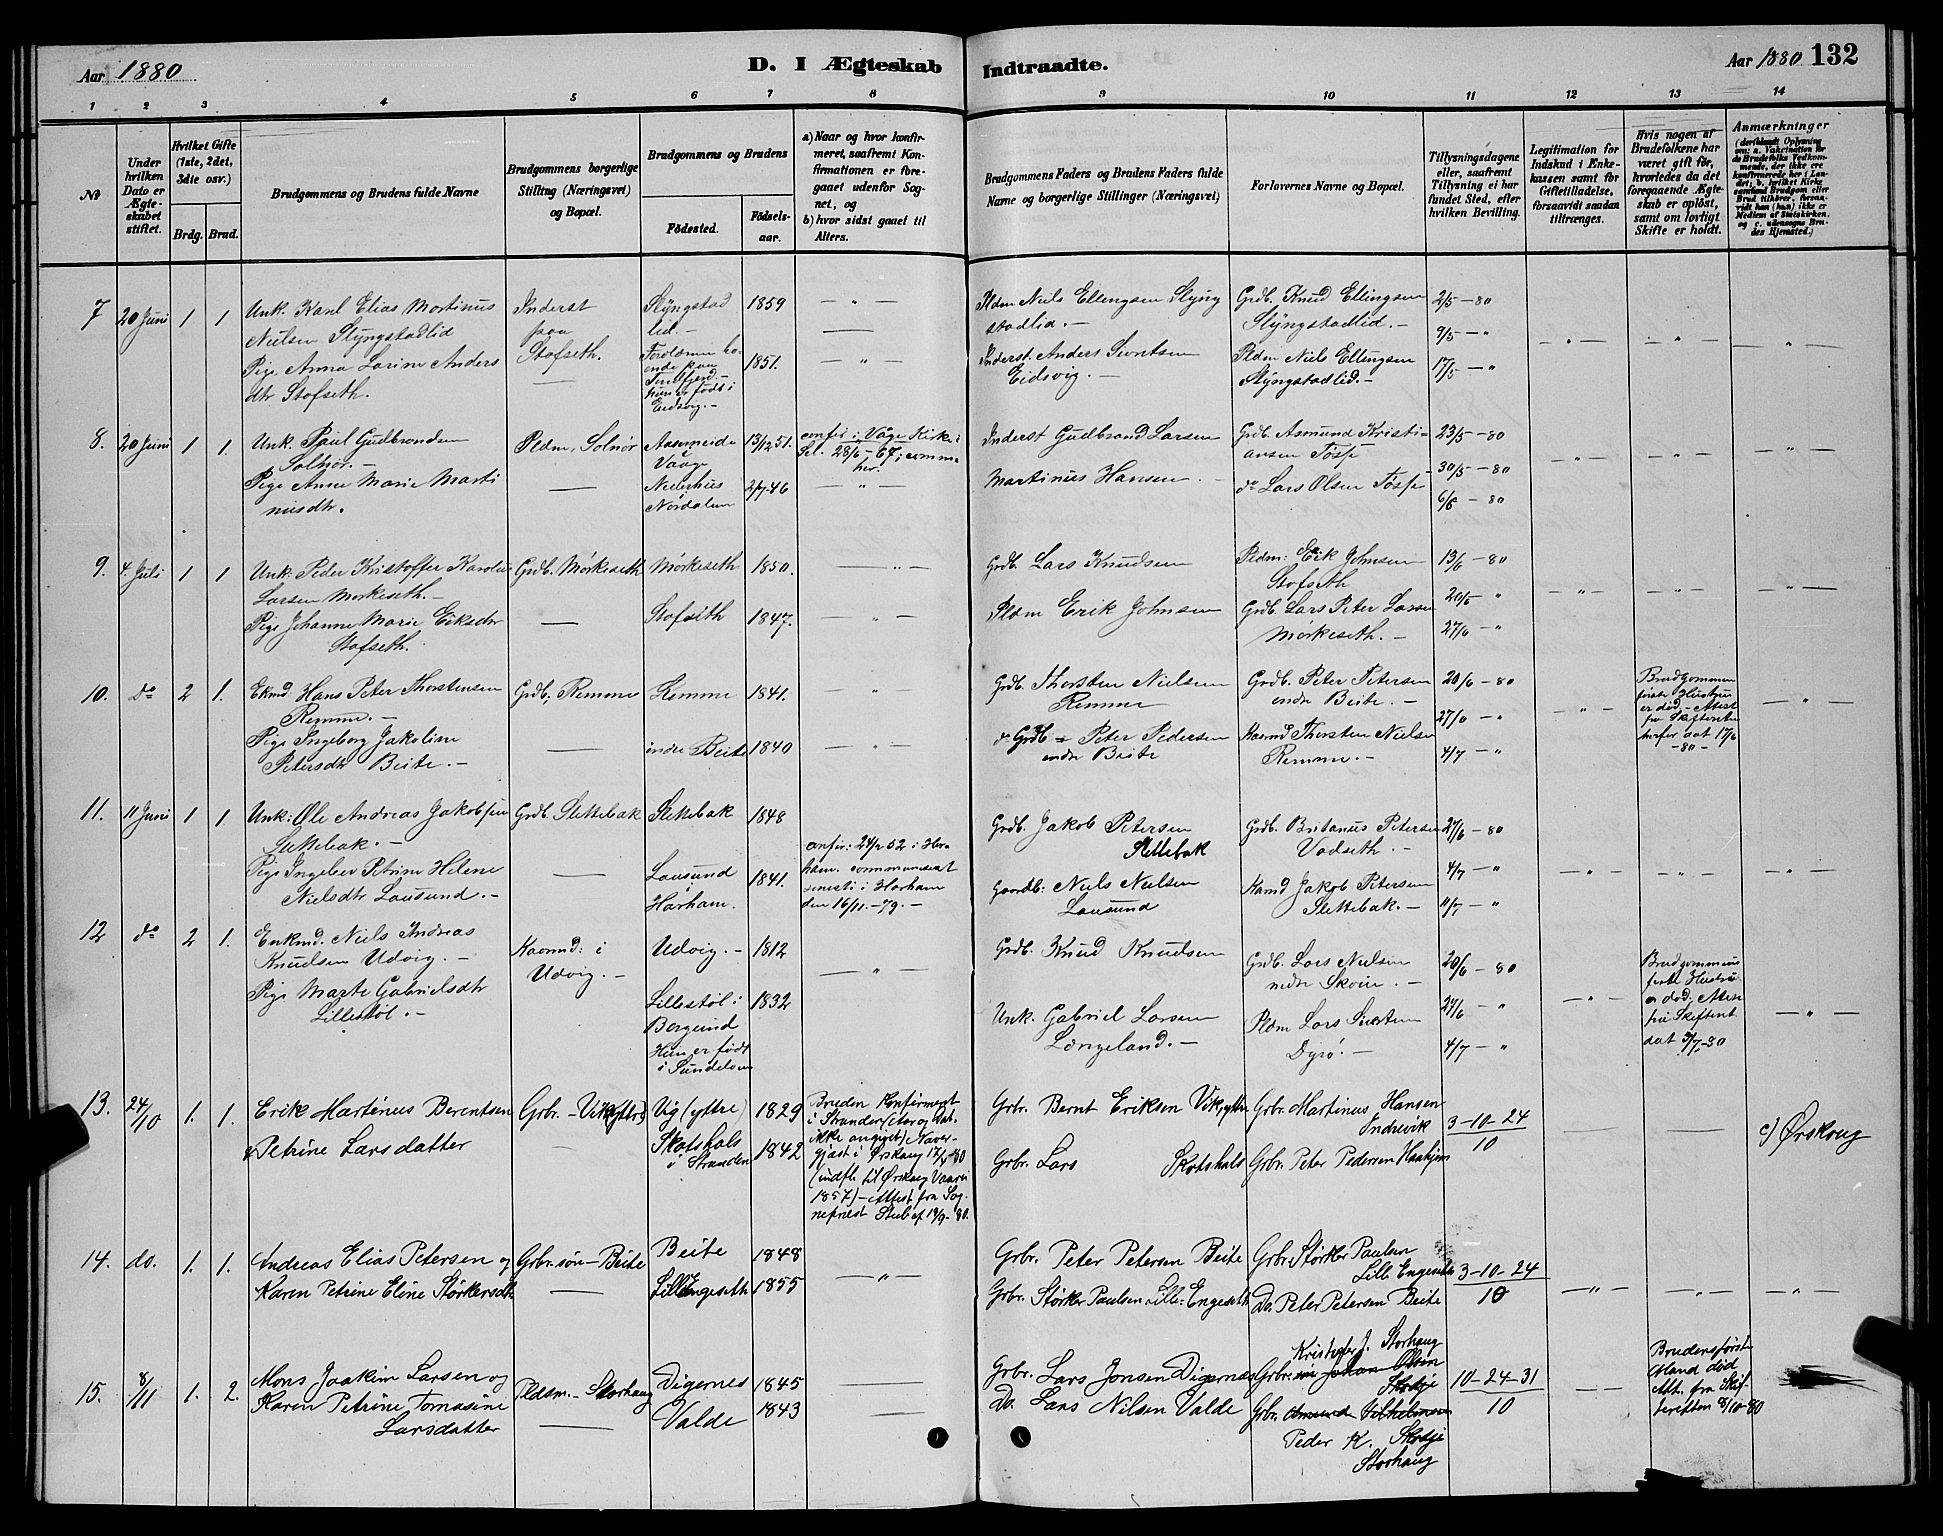 Aar 1880
D. I Ægteskab
Indtraadte.
Aar 1880 132
1 2 3 4 5 6 7 8 9 10 11 12 13 14
No
Under hvilken Dato er Ægteskabet stiftet.
Hvilket Gifte (1ste, 2det, 3die osv.)
Brdg. Brud.
Brudgommens og Brudens fulde Navne
Brudgommens borgerlige Stilling (Næringsvei) og Bopæl.
Brudgommens og Brudens
Fødested.
Fødselsaar.
a) Naar og hvor konfirmeret, saafremt Konfirmationen er foregaaet udenfor Sognet, og
b) hvor sidst gaaet til Alters.
Brudgommens Faders og Brudens Faders fulde Navne og borgerlige Stillinger (Næringsvei)
Forlovernes Navne og Bopæl.
Tillysningsdagene eller, saafremt Tillysning ei har fundet Sted, efter hvilken Bevilling.
Legitimation for Indskud i Enkekassen samt for Giftetilladelse, forsaavidt saadan tiltrænges.
Hvis nogen af Brudefolkene har været gift før, hvorledes da det foregaaende Ægteskab er opløst, samt om lovligt Skifte er holdt.
Anmærkninger (deriblandt Oplysning om: a. Vakcination for de Brudefolks Vedkommende, der ikke ere konfirmerede her i Landet; b. hvilket Kirkesamfund Brudgom eller Brud tilhører, forsaavidt han (hun) ikke er Medlem af Statskirken, og c. udensogns Brudes Hjemsted.)
7 20 Juni 1 1
Unk. Karl Elias Martinus
Nielsen Slyngstadlid
Pige Anna Lorine Anders
dtr Stofseth.
Inderst
paa
Stofseth.
Slyngstad
lid.-
født i
Eidsvig.-
1859
1851.
Pldm Niels Ellingsen Slyng
stadlid.-
Inderst. Anders
Eidsvig.-
Grdb. Knud Ellingsen
Slyngstadlid.-
Pldm Niels Ellingsen
Slyngstadlid.-
2/5-80
9/5-"
17/5-"
8. 20 Juni 1 1.
Unk. Paul Gudbrandsen
Solnør.-
Pige Anne Marie Marti
nusdtr.
Pldm, Solnør
Vaage
Nordalen
13/12 51.
2/7-46
confir. i Våge Kirke i
28/6-67; comm.
her.
Inderst Gudbrand Larsen
Martinus Hansen
Grdb. Asmund Kristi-
ansen Tøsse
do Lars Olsen Tøsse
23/5-80
30/5-80
6/6-80
9. 4. Juli 1 1
Unk. Peder Kristoffer
Larsen Mørkeseth.-
Pige Johanne Marie Eriksdtr
Stofseth.
Grdb. Mørkeseth
Mørkeseth
Stofseth
1850.
1847.
Grdb. Lars Knudsen
Pldm Erik Johnsen
Pldm: Erik Johnsen
Stofseth
Grdb. Lars Peter Larsen
Mørkeseth.-
13/6-80
20/6 "
27/6-"
10. do 2 1.
Ekmd. Hans Peter Thorstensen
Remme.-
Pige Ingeborg Jakoline
Petersdtr Beite.-
Grdb, Remme
Remme
indre Beite
1841.
1840
Grdb. Thorsten Nielsen
Remme
Grdb Peter Pedersen
indre Beite
Grdb. Peter Petersen
indre Beite.-
Kaarmd Thorsten Nielsen
Remme.-
20/6-80
27/6-"
4/7-"
Brudgommens
første Hustru
er død.-Attest
fra Skifteretten
17/6
-80-
11. 11 Juni 1 1
Unk: Ole Andreas Jakobsen
Slettebak.-
Pige Ingeber Petrine Helene
Nielsdtr Lausund.-
Grdb. Slettebak
Slettebak
Lausund
i
Harham.
1848
1841.
confir: i Har
ham. communiceret
senest i Harham
den 16/11.-79.-
Grdb. Jakob Petersen
Slettebak
Gaardb: Niels Nielsen
Lausund
Grdb. Britanus Petersen
Vadseth.-
Kamd Jakob Petersen
Slettebak.-
27/6-80
4/7-"
11/7-"
12 do 2 1.
Enkmd. Niels Andreas
Knudsen Udvig.-
Pige Marte Gabrielsdtr
Lillestøl.-
Kaarmd: i
Udvig.-
Udvig.-
Lillestøl i
Borgund
Hun er født
i Sundelven
1812
1832
Grdb. Knud Knudsen
Unk. Gabriel Larsen
Længeland.-
Grdb. Lars Nielsen
nedre Skoue.-
Pldm Lars Sivertsen
Dyrø.-
20/6-80
27/6-"
4/7-"
Brudgommens
første Hustru
er død. Attest
fra Skifteret
dat 3/7-80
13. 24/10 1. 1.
Erik Martinus Berentsen
& Petrine Larsdatter
Grbr.-Vik (yttre)
Vig (yttre)
Skotshals
i Stranden
1829
1842
Bruden Konfirmeret
i Stranden (Aar og Dat.
ikke angivet) Naver-
gjæst i Ørskoug 17/4 80
(indfl. til Ørskoug Vaaren
1857)-Attest fra Sog
nepræst Stub af 19/9-80.
Grbr. Bernt Eriksen Vik, yttre
Grbr. Lars Skotshals
Grbr. Martinus Hansen
Indrevik
Grbr. Peter Pedersen Haakjem
3-10-24
10
c) Ørskoug
14. do. 1. 1.
Andreas Elias Petersen og
Karen Petrine Eline Størkersdtr
Grbr. søn-Beite
Beite
Lille Engeseth
1848
1855
Grbr. Peter Petersen Beite
Grbr. Størker Paulsen Lille-Engeseth
Grbr. Størker Paulsen
Lille Engeseth
Do. Peter Petersen Beite
3-10-24
10
15. 8/11 1. 2.
Mons Joakim Larsen og
Karen Petrine Tomasine
Larsdatter
Pldsm.-Storhaug
Digernes
Valde
1845
1843
Grbr. Lars Jonsen Digernes
Do. Lars Nilsen Valde
Kristofer J. Storhaug
Grbr. Johan Olsen
Skodje
Grbr. Amund Vilhelmsen
Peder K. Skodje
Storhaug
10-24-31
10
Brudens første
Mand død
Att. fra Skif-
teretten 8/10-80